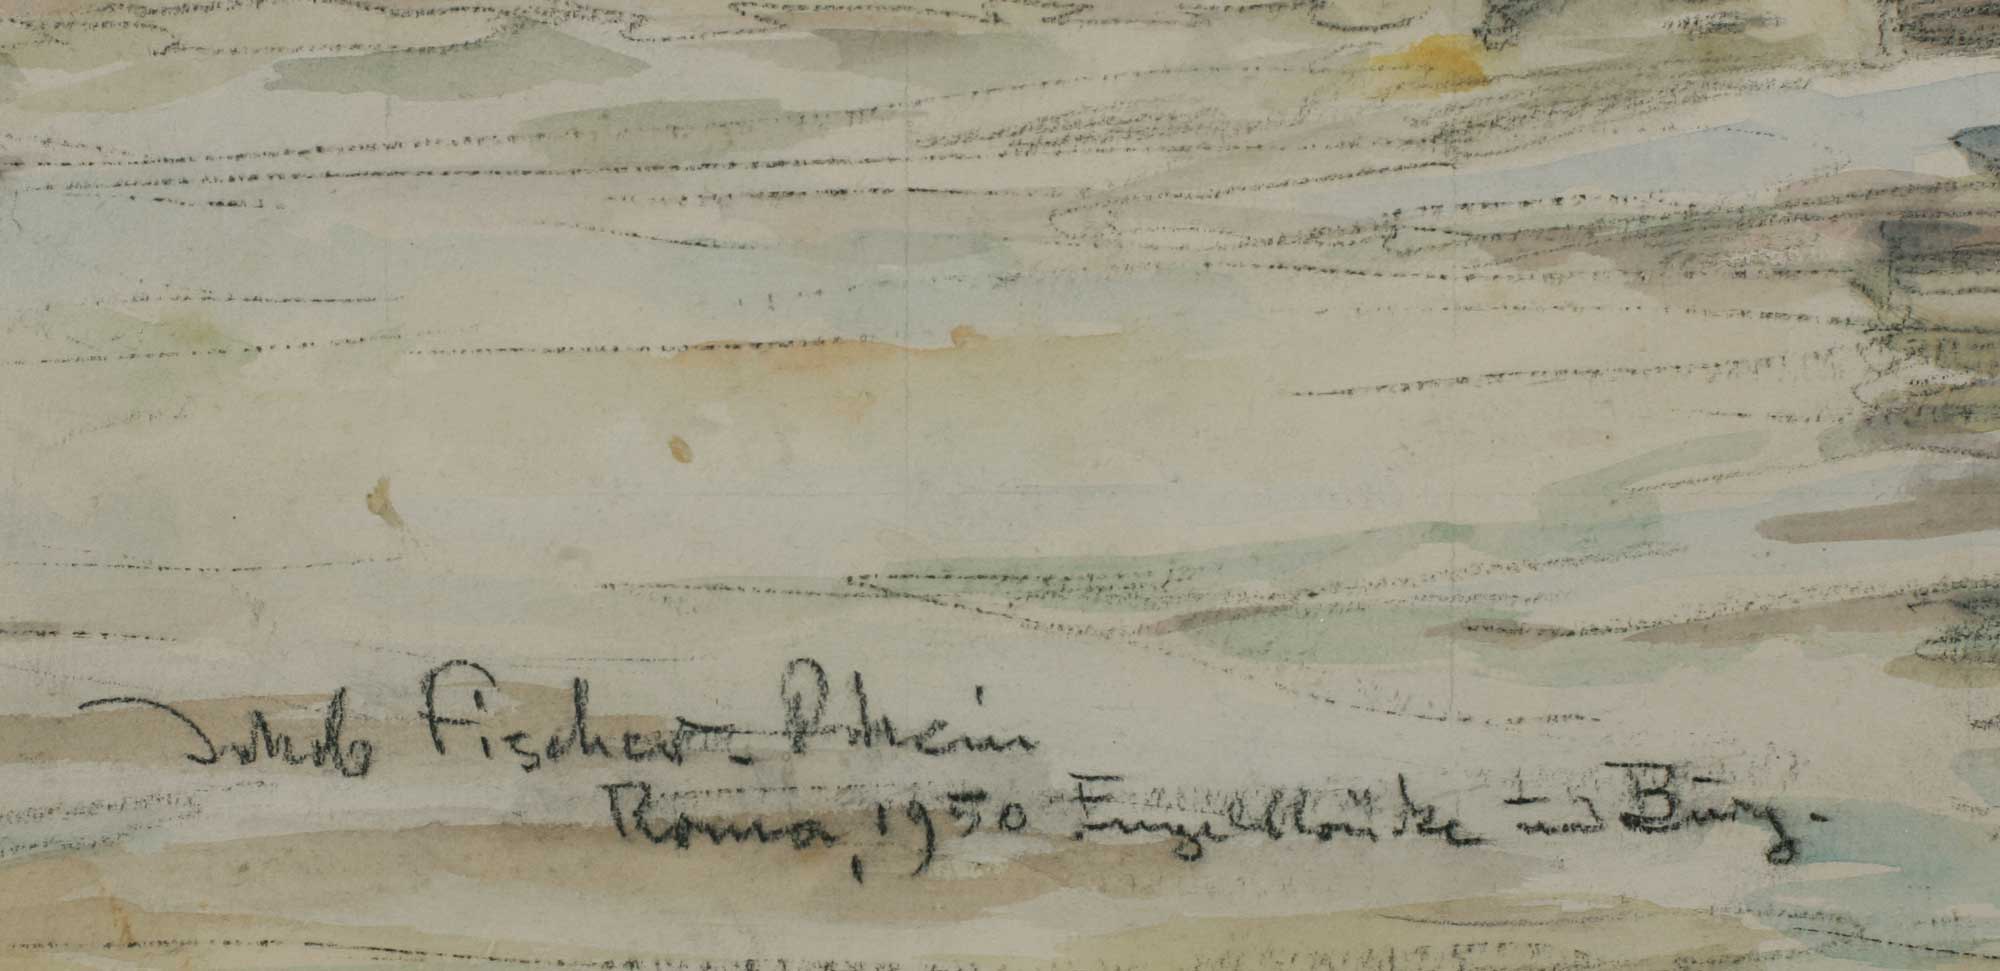 Jakob Fischer-Rhein
Roma, 1950 Engelsbrücke und Burg.